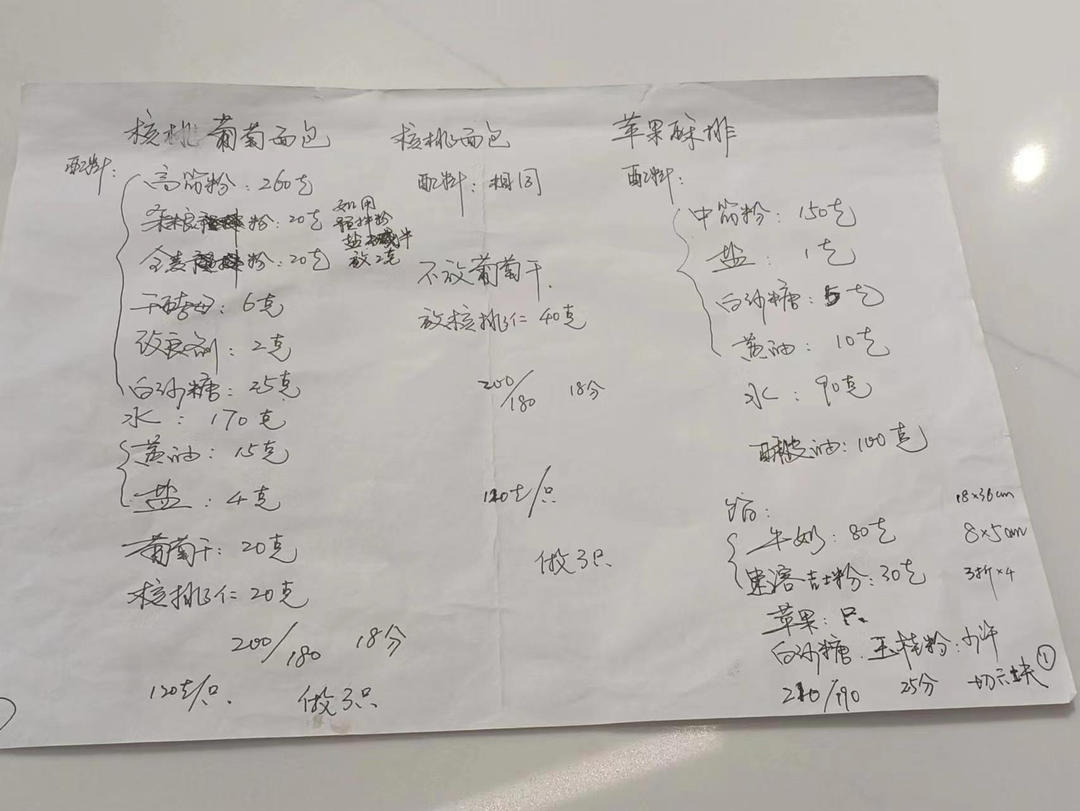 核桃葡萄面包
配料：
高筋粉：260克
杂粮粉：20克
全麦粉：20克
如用
预拌粉
盐减半
放2克
干酵母：6克
改良剂：2克
白砂糖：25克
水：170克
黄油：15克
盐：4克
葡萄干：20克
核桃仁20克
200/180 18分
120克/只. 做3只
核桃面包
配料：相同
不放葡萄干.
放核桃仁40克
200/180 18分
120克/只
做3只
苹果酥排
配料：
中筋粉：150克
盐：1克
白砂糖：5克
黄油：10克
水：90克
酥皮油：100克
馅：
牛奶：80克
速溶吉士粉：30克
苹果：只
白砂糖.玉桂粉：少许
210/190 25分 切6块
18×36cm
8×5cm
3折×4
①